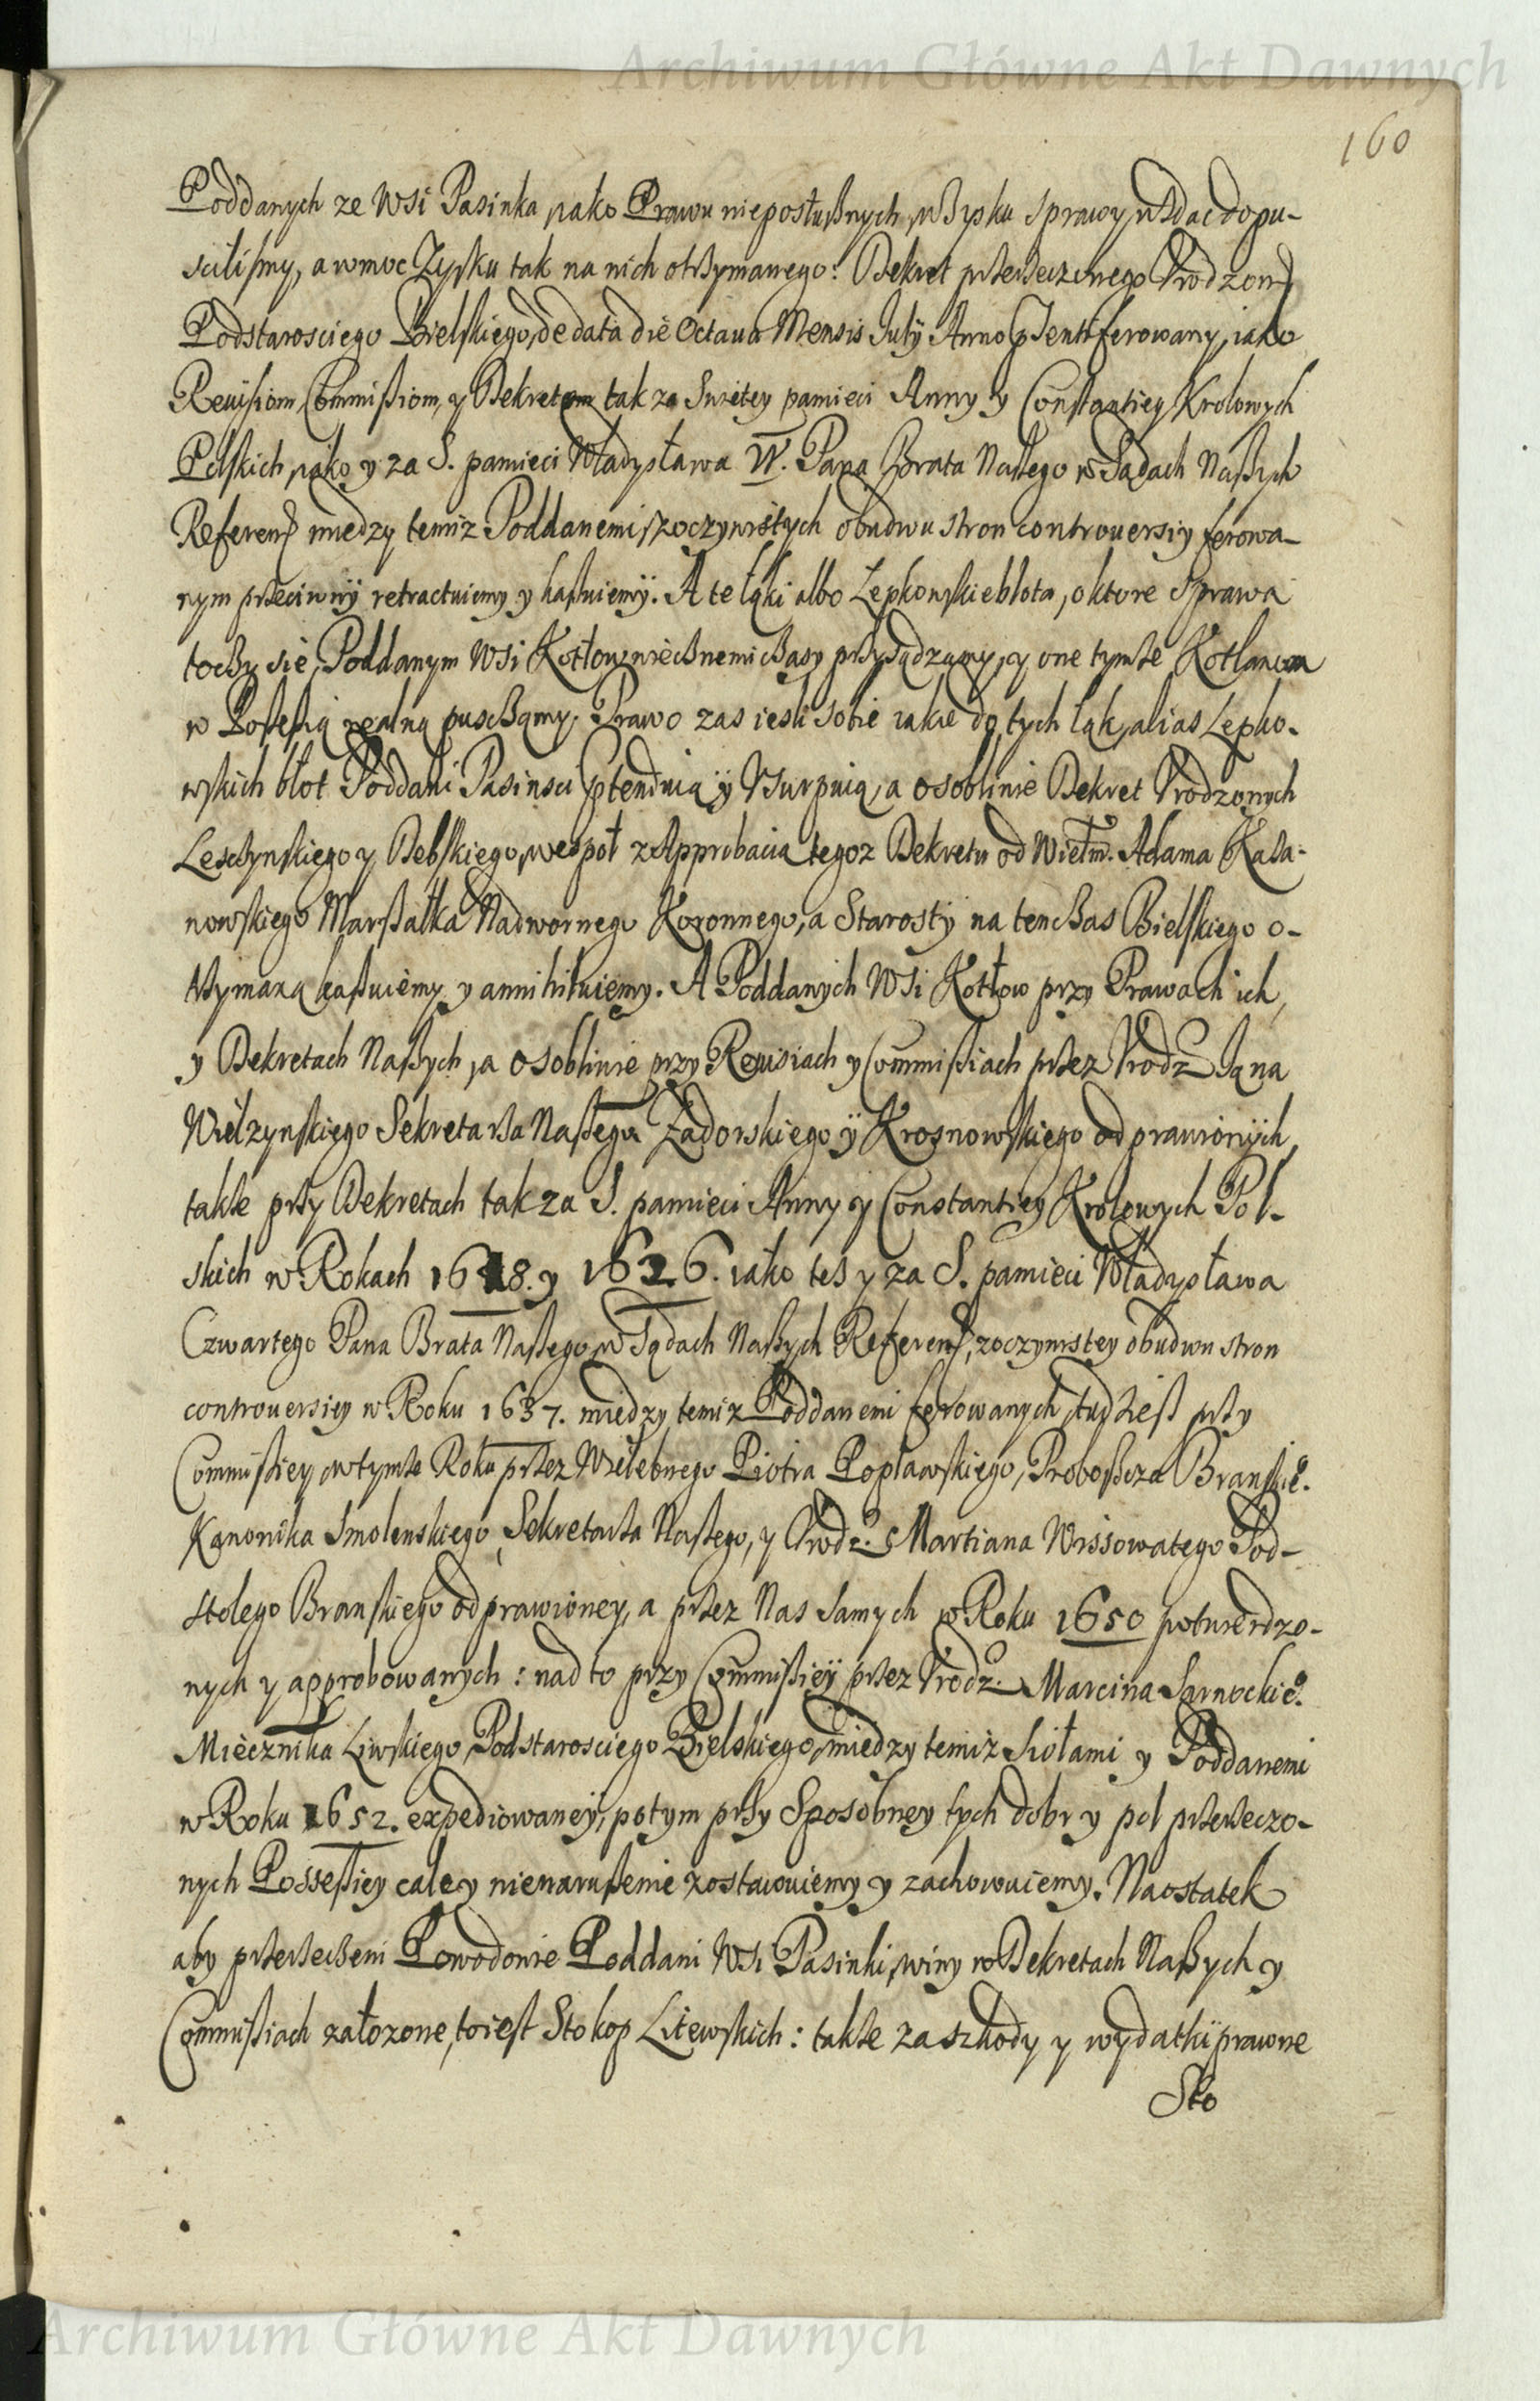 Archiwum Główne Akt Dawnych
160
Poddanych ze Wsi Pasinka, iako Prawu nieposłusznych, w Zysku sprawy wzdac dopu-
scilismy, a w moc Zysku tak na nich otrzymanego: Dekret przerzeczonego Vrodzon
Podstarosciego Bielskiego, de data die Octaua Mensis July Anno ferowany, iako
Reuisiom, Commissiom, y Dekretom tak za Swietey pamieci Anny y Constantiey Krolowych
Polskich, iako y za S. pamieci Władysława IV. Pana Brata Naszego w Sądach Naszych
Referen miedzy temiz Poddanemi, z oczywistych obudwu stron controuersiy ferowa-
nym przeciwny retractuiemy y kassuiemy. A te łąki albo Lepkowskie błota, o ktore sprawa
toczy sie, Poddanym Wsi Kotłow wiecznemi czasy przysądzamy, y one tymze Kotlanom
w Possessią realną puszczamy, Prawo zas iesli sobie iakie do tych łąk, alias Lepko-
wskich błot Poddani Pasinscy ptenduią y Vsurpuią, a osobliwie Dekret Vrodzonych
Lesczynskiego y Debskiego, wespoł z Approbacią tegoz Dekretu od Wielm. Adama Kaza-
nowskiego Marszałka Nadwornego Koronnego, a Starosty na ten czas Bielskiego o-
trzymaną kassuiemy y annihiluiemy. A Poddanych Wsi Kotłow przy Prawach ich,
y Dekretach Naszych, a osobliwie przy Reuisiach y Commissiach przez Vrodz Jana
Wilczynskiego Sekretarza Naszego Zadorskiego y Krosnowskiego odprawionych,
takze przy Dekretach tak za S. pamieci Anny y Constantiey Krolowych Pol-
skich w Rokach 1618. y 1626. iako tez y za S. pamieci Władysława
Czwartego Pana Brata Naszego, w Sądach Naszych Referen, z oczywistey obudwu stron
controuersiey w Roku 1637. miedzy temiz Poddanemi ferowanych, tudziesz przy
Commissiey, w tymze Roku przez Wielebnego Piotra Popławskiego, Proboszcza Branskie.
Kanonika Smolenskiego, Sekretarza Naszego, y Vrodz. Martiana Wissowatego Pod-
stolego Branskiego odprawioney, a przez Nas samych w Roku 1650 potwierdzo-
nych y approbowanych: nad to przy Commissiey przez Vrodz. Marcina Sarnockie.
Miecznika Liwskiego, Podstarosciego Bielskiego, miedzy temiz Siołami y Poddanemi
w Roku 1652. expediowaney, potym przy Sposobney tych dobr y pol przerzeczo-
nych Possessiey całey nienaruszenie zostawuiemy y zachowuiemy. Naostatek
aby przerzeczeni Powodowie Poddani Wsi Pasinki, winy w Dekretach Naszych y
Commissiach załozone, to iest Sto kop Litewskich: takze za szkody y wydatki prawne
Sto
Archiwum Główne Akt Dawnych